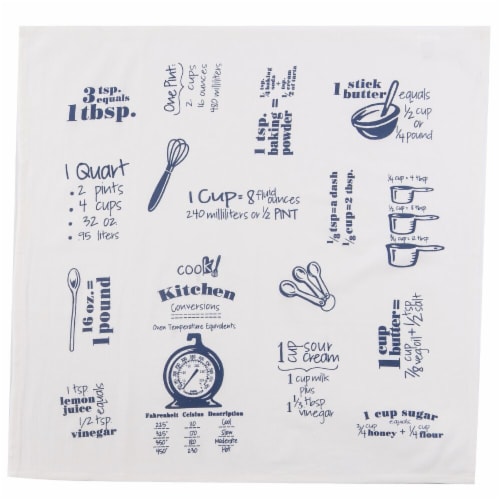 3 tsp.
equals
1 tbsp.
One Pint
2 cups
16 ounces
480 milliliters
1 tsp.
baking =
powder
1 stick
butter
equals
1/2 cup
or
1/4 pound
1 Quart
• 2 pints
• 4 cups
• 32 oz
• .95 liters
1 Cup = 8 fluid
ounces
240 milliliters or 1/2 PINT
1/8 tsp = a dash
1/8 cup = 2 tbsp.
1/4 cup = 4 tbsp
16 oz. =
1 pound
cook
Kitchen
Conversions
Oven Temperature Equivalents
Fahrenheit Celsius Description
Cool
325° 170 Slow
350° 180 Moderate
450° 230 Hot
1 cup sour
cream
1 cup milk
plus
1 1/3 tbsp
vinegar
1 cup
butter =
7/8 cup
vegoil + 1/2 tsp
salt
1 tsp
lemon
juice equals
1/2 tsp
vinegar
1 cup sugar
equals
3/4 cup honey + 1/4 cup flour